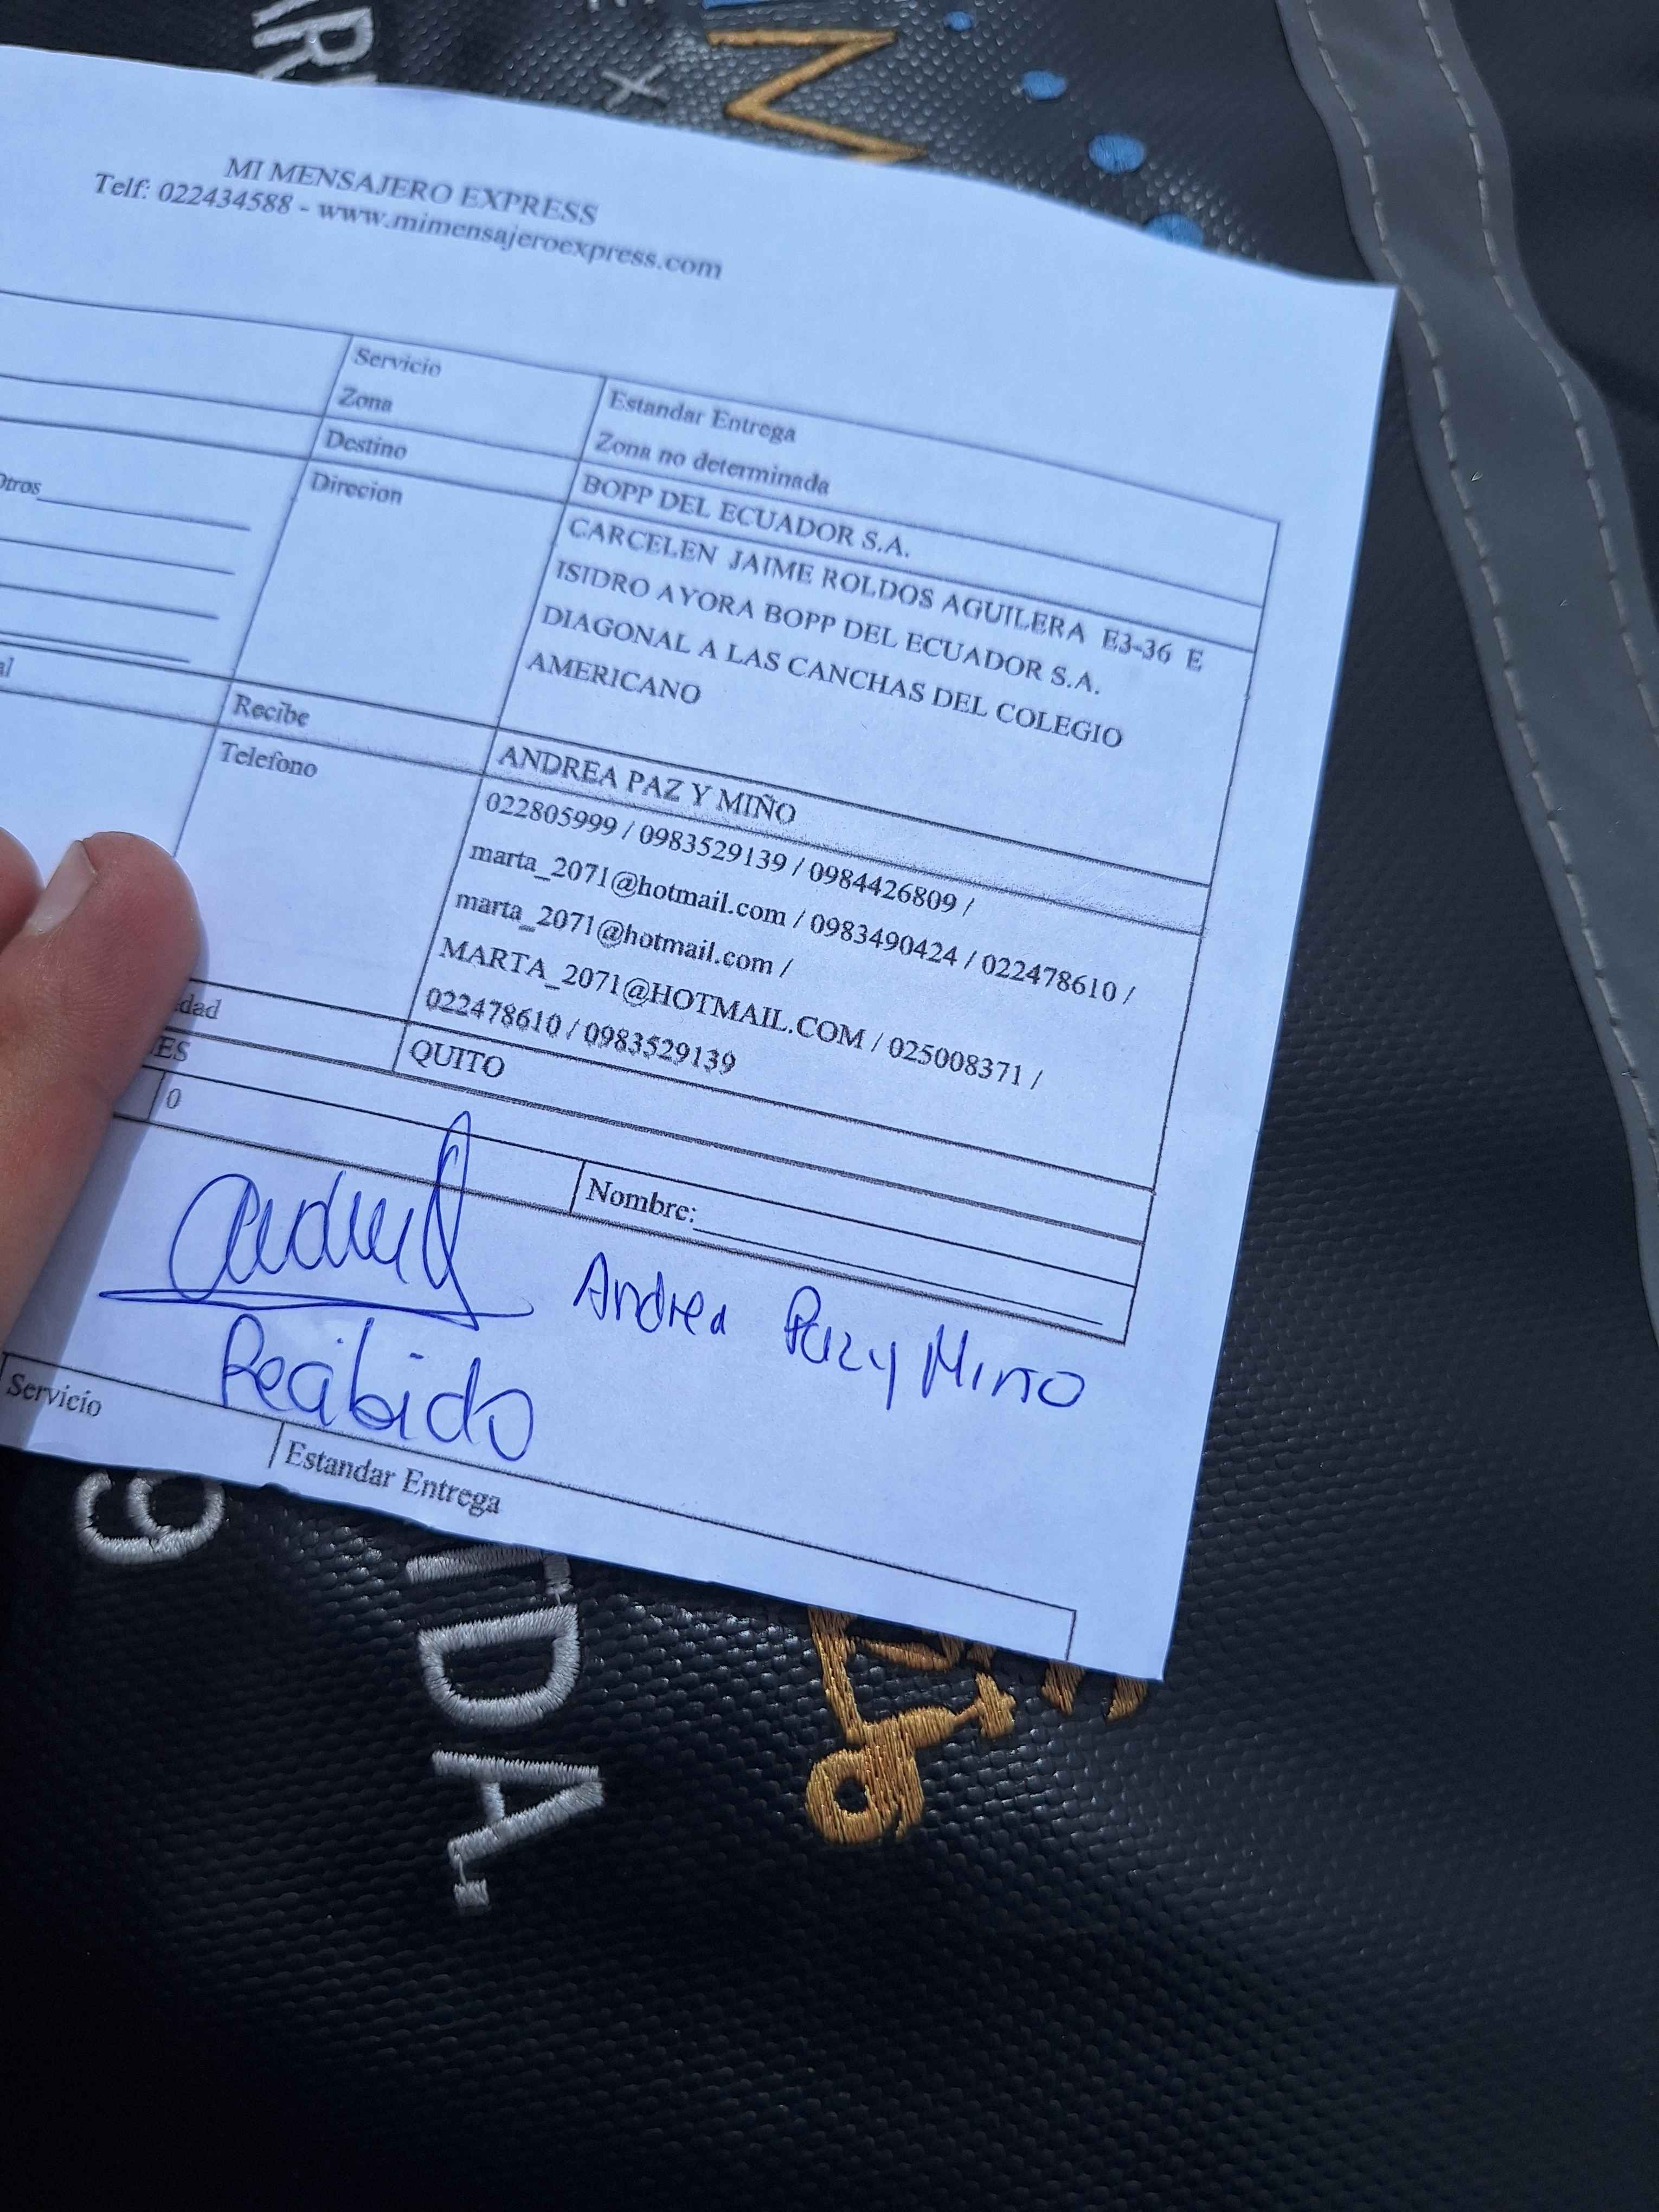 MI MENSAJERO EXPRESS
Telf: 022434588 - www.mimensajeroexpress.com
Servicio Estandar Entrega
Zona Zona no determinada
Destino BOPP DEL ECUADOR S.A.
Otros Direcion CARCELEN JAIME ROLDOS AGUILERA E3-36 E
ISIDRO AYORA BOPP DEL ECUADOR S.A.
DIAGONAL A LAS CANCHAS DEL COLEGIO
AMERICANO
Recibe ANDREA PAZ Y MIÑO
Telefono 022805999 / 0983529139 / 0984426809 /
marta_2071@hotmail.com / 0983490424 / 022478610 /
marta_2071@hotmail.com /
MARTA_2071@HOTMAIL.COM / 025008371 /
022478610 / 0983529139
dad QUITO
ES
0
Nombre:
Andrea Paz y Miño
Recibido
Servicio Estandar Entrega
TDA.